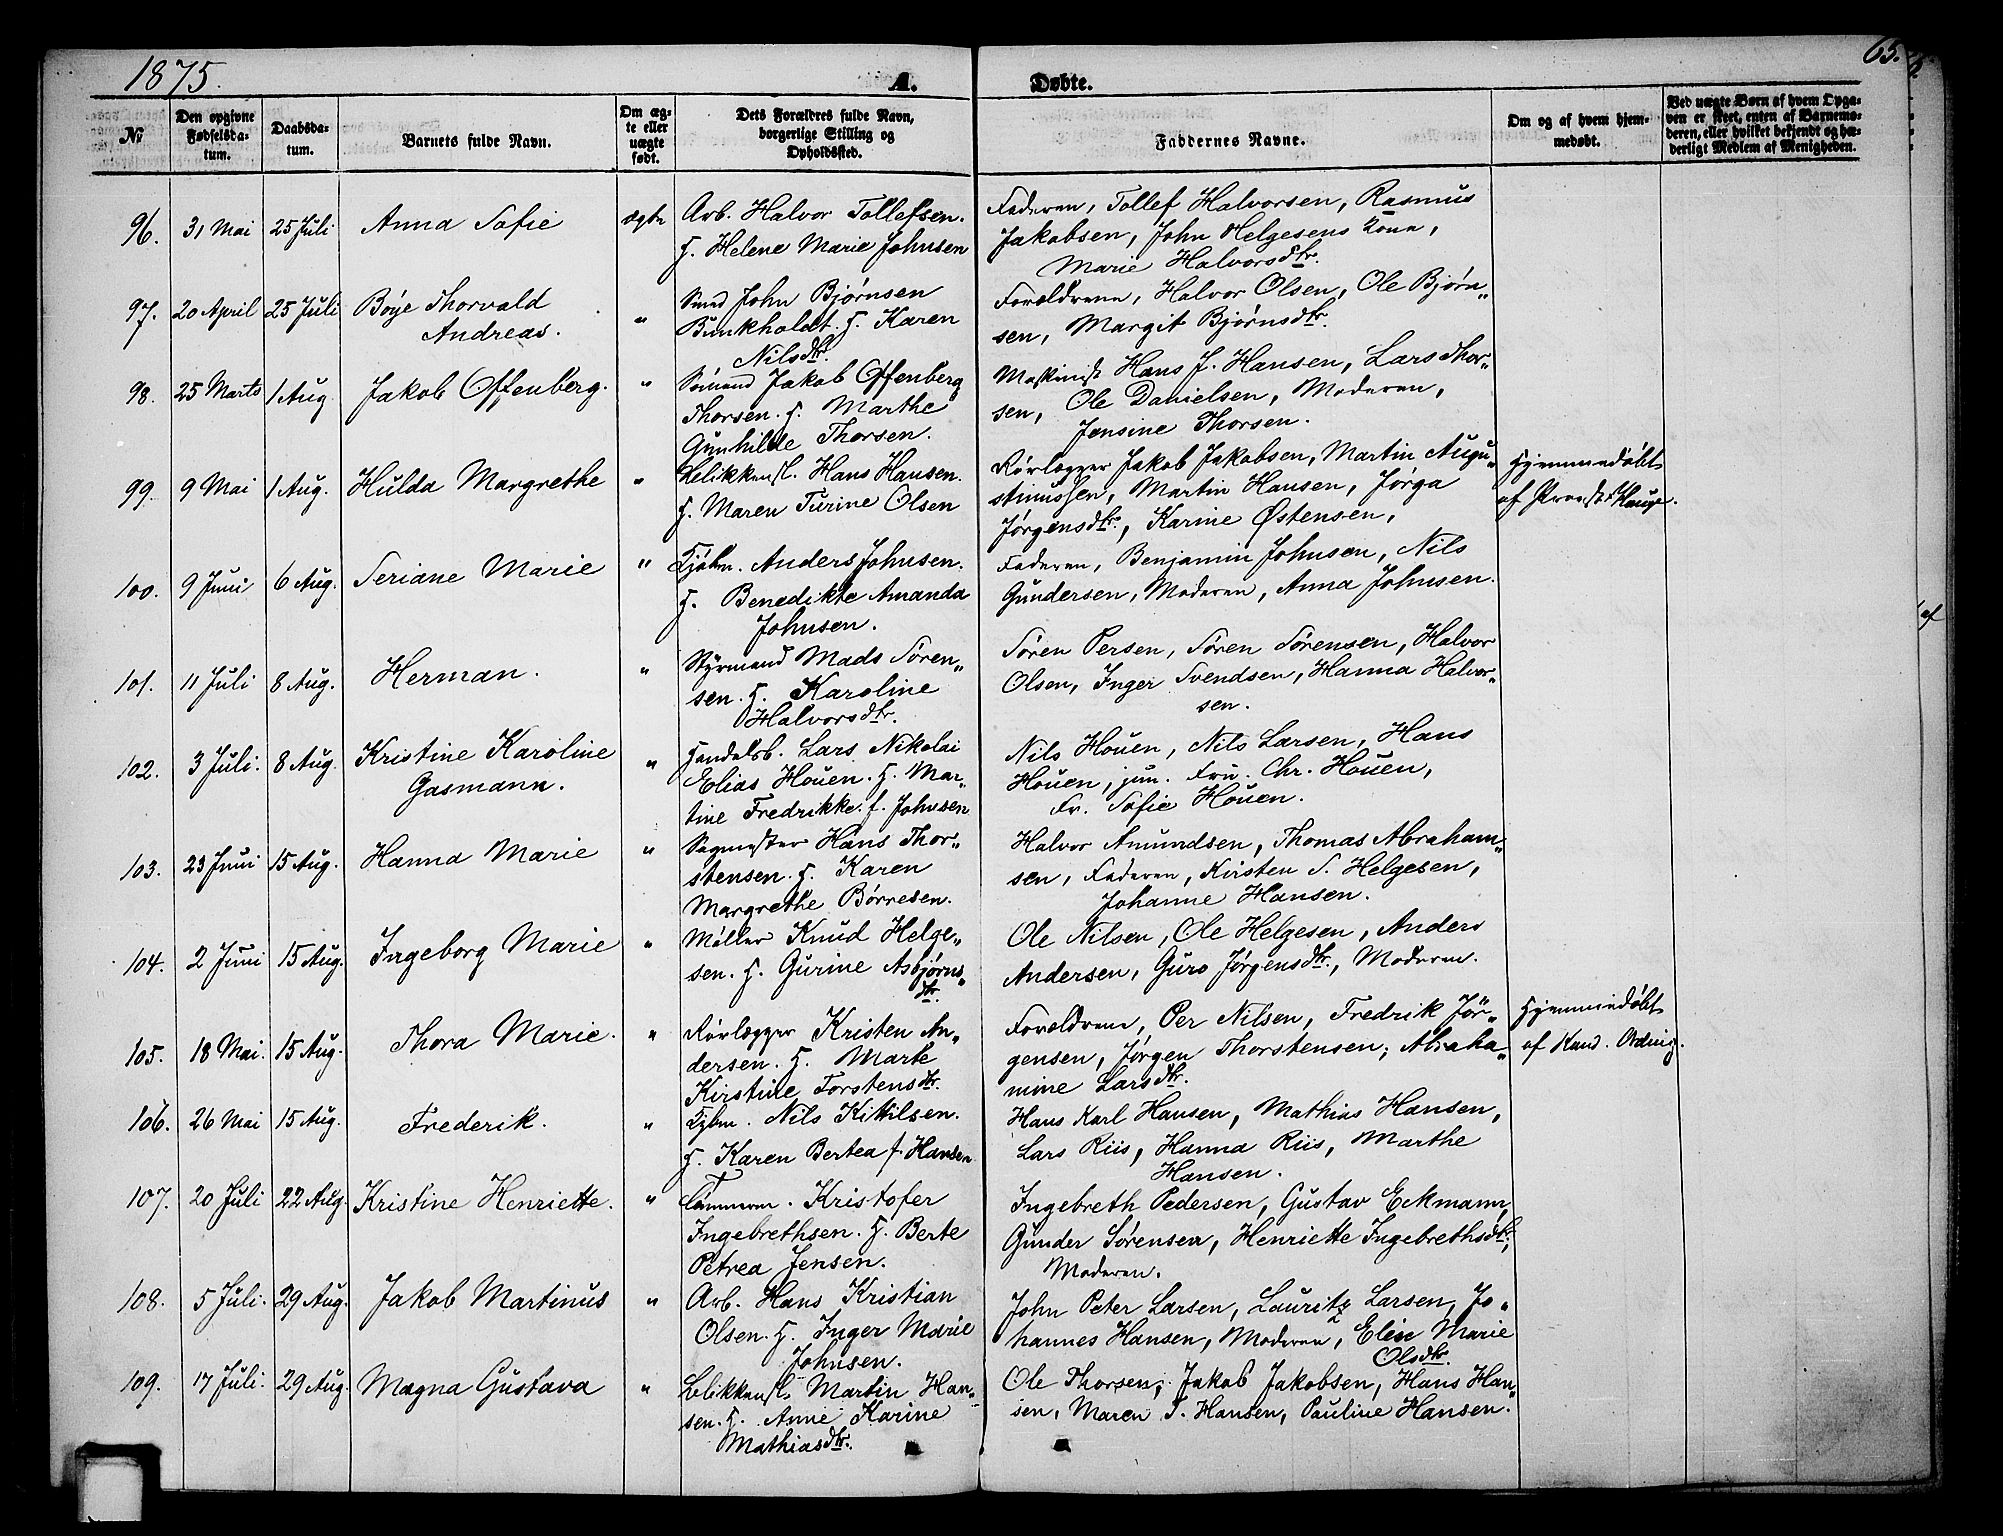 1875.
A. Døbte.
65.
№
Den opgivne Fødselsda-tum.
Daabsda-tum.
Barnets fulde Navn.
Om æg-te eller uægte født.
Dets Forældres fulde Navn, borgerlige Stilling og Opholdssted.
Faddernes Navne.
Om og af hvem hjem-medøbt.
Ved uægte Børn af hvem Opga-ven er skeet, enten af Barnemo-deren, eller hvilket bekjendt og hæ-derligt Medlem af Menigheden.
96. 31 Mai 25 Juli Anna Sofie ægte Arb. Halvor Tollefsen.
H. Helene Marie Johnsen
Faderen, Tollef Halvorsen, Rasmus
Jakobsen, John Helgesens Kone,
Marie Halvorsdtr.
97. 20 April 25 Juli Bøye Thorvald
Andreas.
" Smed John Bjørnsen
Bunkholdt. H. Karen
Nilsdtr.
Forældrene, Halvor Olsen, Ole Bjørn"
sen, Margit Bjørnsdtr.
98. 25 Marts 1 Aug. Jakob Offenberg. " Sømand Jakob Offenberg
Thorsen. H. Marthe
Gunhilde Thorsen.
Maskinist Hans J. Hansen, Lars Thor"
sen, Ole Danielsen, Moderen,
Jensine Thorsen.
99. 9 Mai 1 Aug. Hulda Margrethe " Blikkensl. Hans Hansen.
H. Maren Turine Olsen
Rørlægger Jakob Jakobsen, Martin Augu"
stinussen, Martin Hansen, Jørga
Jørgensdtr., Karine Østensen,
Hjemmedøbt
af Provst Hauge.
100. 9 Juni 6 Aug. Seriane Marie " Kjøbm. Anders Johnsen.
H. Benedikte Amanda
Johnsen.
Faderen, Benjamin Johnsen, Nils
Gundersen, Moderen, Anna Johnsen.
101. 11 Juli 8 Aug. Herman. " Styrmand Mads Søren"
sen. H. Karoline
Halvorsdtr.
Søren Persen, Søren Sørensen, Halvor
Olsen, Inger Svendsen, Hanna Halvor"
sen.
102. 3 Juli. 8 Aug. Kristine Karoline
Gasmann.
" Handelsb. Lars Nikolai
Elias Houen. H. Mar"
tine Fredrikke f. Johnsen
Nils Houen, Nils Larsen, Hans
Houen, jun. Fru. Chr. Houen,
Fr. Sofie Houen.
103. 23 Juni 15 Aug. Hanna Marie " Sagmester Hans Thor"
stensen. H. Karen
Margrethe Børresen.
Halvor Amundsen, Thomas Abraham"
sen, Faderen, Kirsten S. Helgesen,
Johanne Hansen.
104. 2 Juni 15 Aug. Ingeborg Marie " Møller Knud Helge"
sen. H. Gurine Asbjørns"
dtr.
Ole Nilsen, Ole Helgesen, Anders
Andersen, Guro Jørgensdtr., Moderen.
105. 18 Mai. 15 Aug. Thora Marie. " Rørlægger Kristen An"
dersen. H. Marte
Kirstine Torstensdtr.
Forældrene, Per Nilsen, Fredrik Jör"
gensen, Jørgen Thorstensen, Abraha"
mine Larsdtr.
Hjemmedøbt
af Kand. Ording.
106. 26 Mai 15 Aug. Frederik. " Kjbm. Nils Kittilsen.
H. Karen Bertea f. Hansen
Hans Karl Hansen, Mathias Hansen,
Lars Riis, Hanna Riis, Marthe
Hansen.
107. 20 Juli 22 Aug. Kristine Henriette. " Tømmerm. Kristofer
Ingebrethsen. H. Berte
Petrea Jensen.
Ingebreth Pedersen, Gustav Eckmann,
Gunder Sørensen, Henriette Ingebrethsdtr,
Moderen.
108. 5 Juli. 29 Aug. Jakob Martinus " Arb. Hans Kristian
Olsen. H. Inger Marie
Johnsen.
John Peter Larsen, Lauritz Larsen, Jo"
hannes Hansen, Moderen, Elen Marie
Olsdtr.
109. 17 Juli. 29 Aug. Magna Gustava " Blikkensl. Martin Han"
sen. H. Anne Karine
Mathiasdtr.
Ole Thorsen, Jakob Jakobsen, Hans Han"
sen, Maren T. Hansen, Pauline Hansen.
af